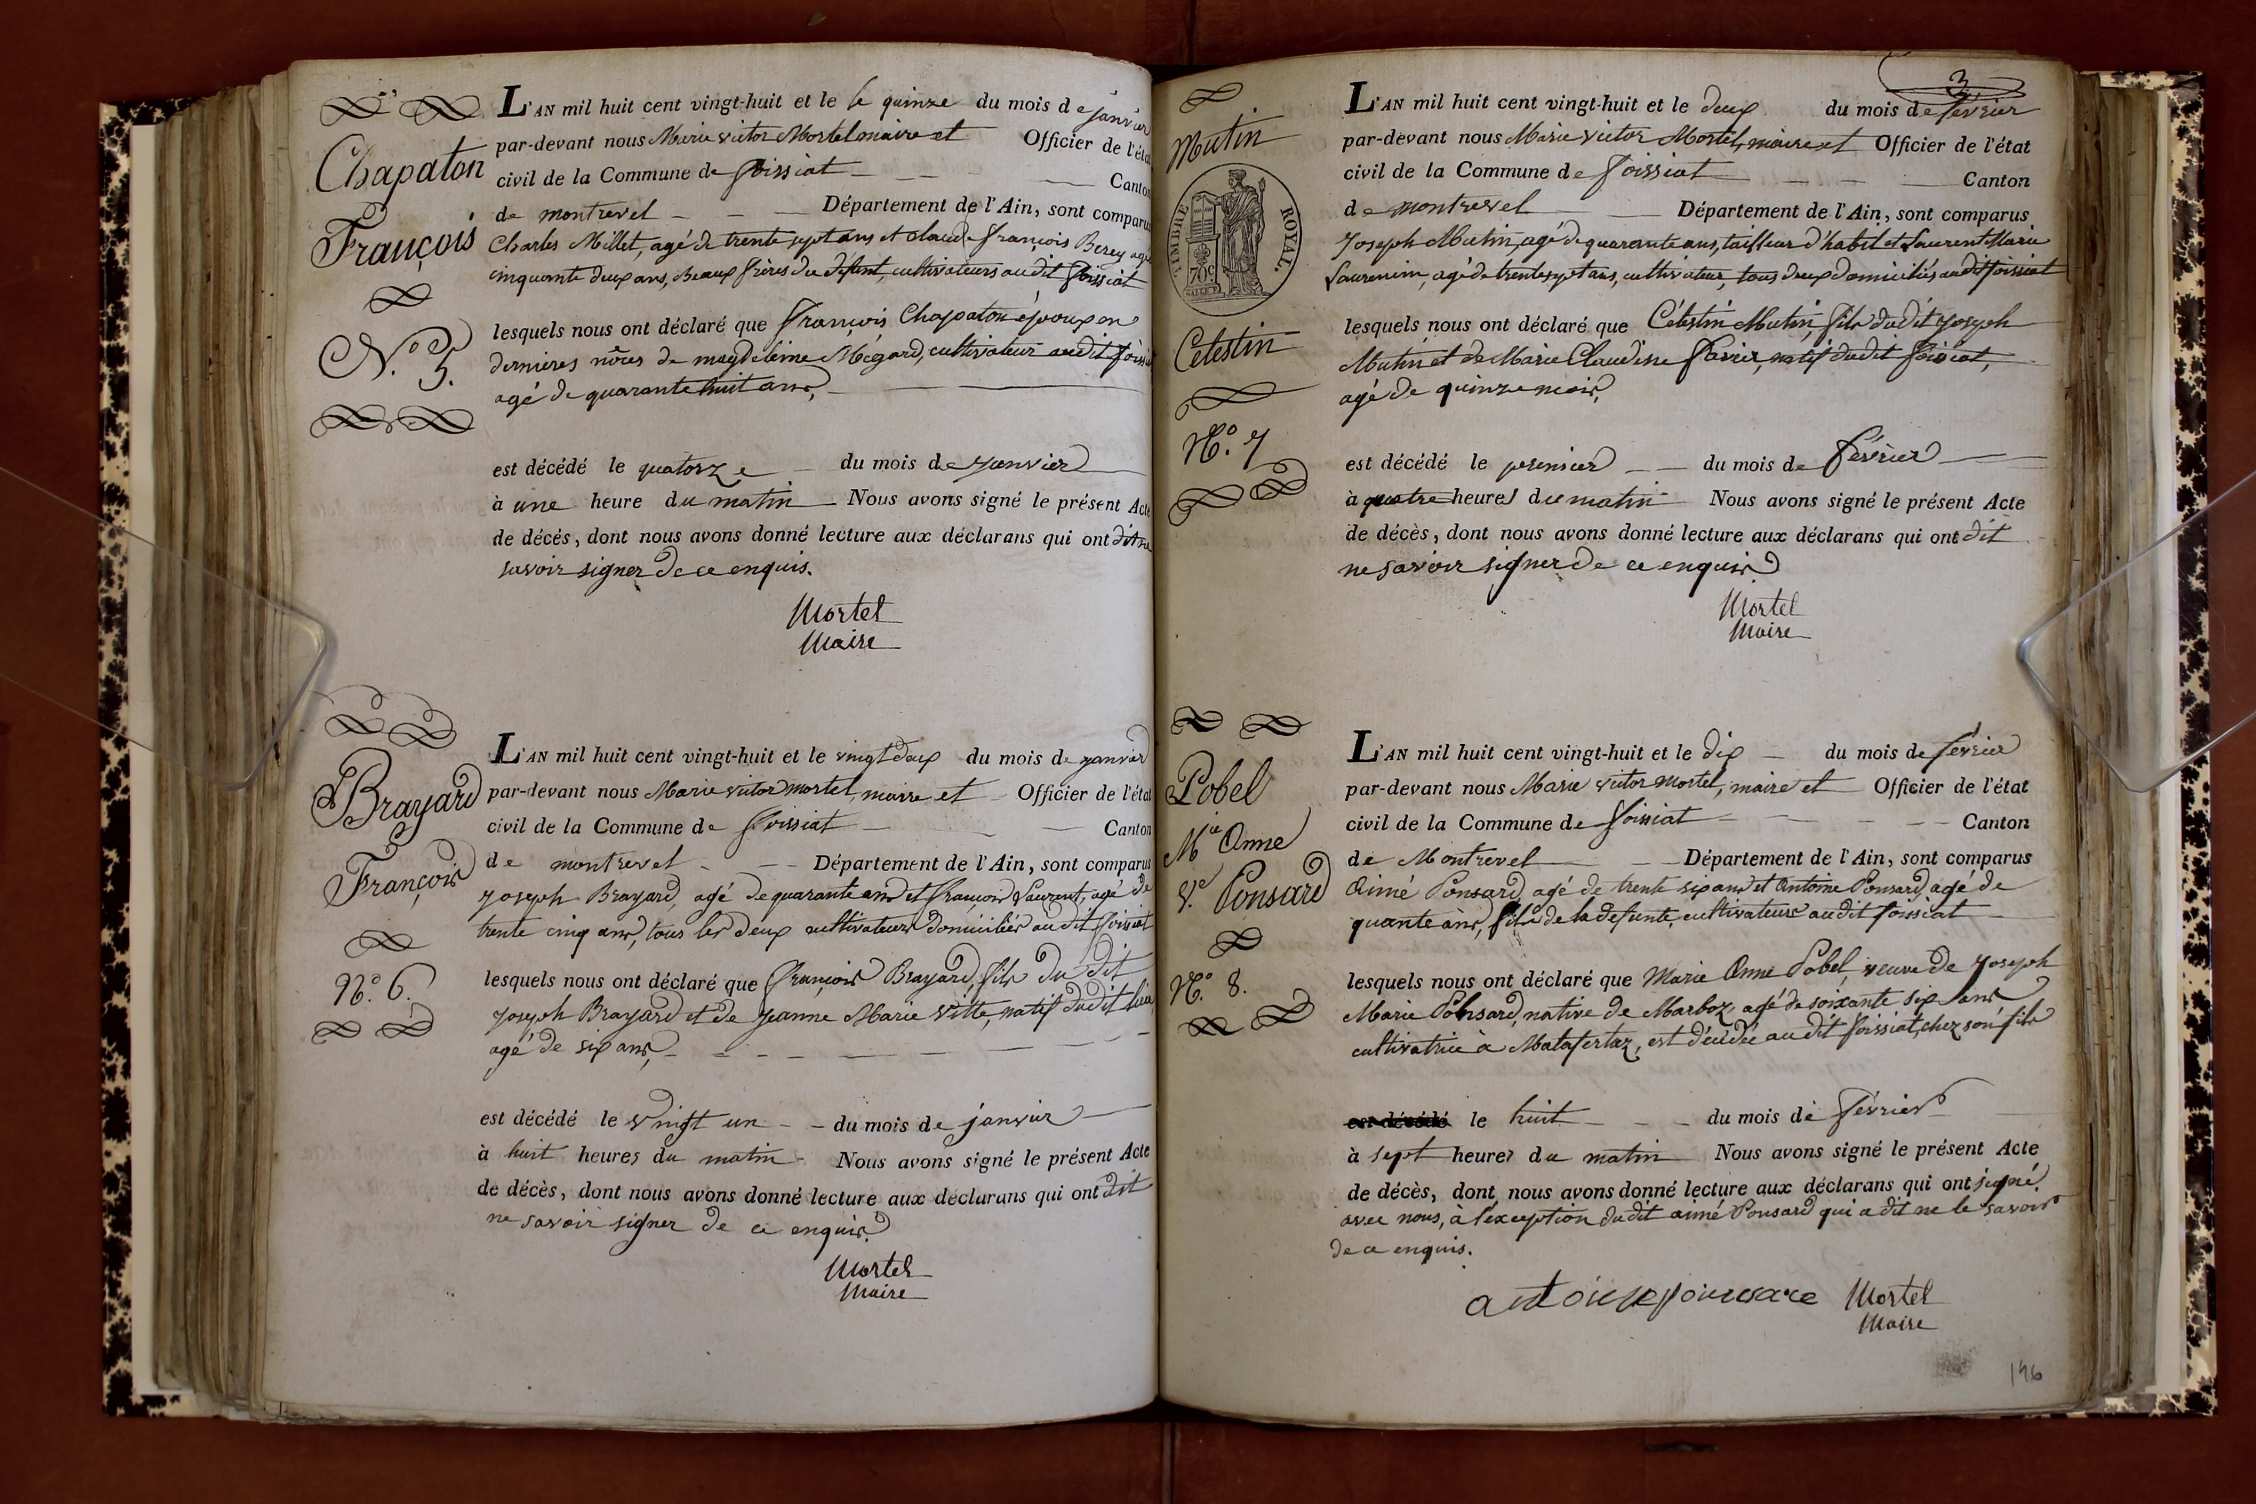 Chapaton
François
N.° 5.
L'AN mil huit cent vingt-huit et le le quinze du mois de janvier
par-devant nous Marie victor Mortel maire et Officier de l'état
civil de la Commune de foissiat Canton
de montrevel Département de l'Ain, sont comparus
Charles Millet, agé de trente sept ans et claude françois Berey agé
cinquante deux ans, Beaux frères du defunt, cultivateurs au dit foissiat
lesquels nous ont déclaré que françois Chapaton époux en
dernieres nôces de magdeleine Mégard, cultivateur au dit foissiat
agé de quarante huit ans,
est décédé le quatorze du mois de janvier
à une heure du matin Nous avons signé le présent Acte
de décés, dont nous avons donné lecture aux déclarans qui ont dit ne
savoir signer de ce enquis.
Mortel
Maire
Brayard
François
N.° 6.
L'AN mil huit cent vingt-huit et le vingt deux du mois de janvier
par-devant nous Marie victor mortel, maire et Officier de l'état
civil de la Commune de foissiat Canton
de montrevel Département de l'Ain, sont comparus
joseph Brayard, agé de quarante ans et françois Laurent, agé de
trente cinq ans, tous les deux cultivateurs domiciliés au dit foissiat
lesquels nous ont déclaré que françois Brayard, fils du dit
joseph Brayard et de jeanne Marie vitte, natif dudit lieu
agé de six ans,
est décédé le vingt un du mois de janvier
à huit heures du matin Nous avons signé le présent Acte
de décès, dont nous avons donné lecture aux déclarans qui ont dit
ne savoir signer de ce enquis.
Mortel
Maire
3
Mutin
TIMBRE ROYAL.
70c
Celestin
N.° 7
L'AN mil huit cent vingt-huit et le deux du mois de février
par-devant nous Marie victor Mortel, maire et Officier de l'état
civil de la Commune de foissiat Canton
de montrevel Département de l'Ain, sont comparus
joseph Mutin, agé de quarante ans, tailleur d'habit et Laurent Marie
Laurencin, agé de trente sept ans, cultivateur, tous deux domiciliés au dit foissiat
lesquels nous ont déclaré que Célestin Mutin, fils du dit joseph
Mutin et de Marie Claudine favier, natif dudit foissiat,
agé de quinze mois,
est décédé le premier du mois de février
à quatre heures du matin Nous avons signé le présent Acte
de décès, dont nous avons donné lecture aux déclarans qui ont dit
ne savoir signer de ce enquis
Mortel
Maire
Pobel
Mie Anne
Ve. Ponsard
N.° 8.
L'AN mil huit cent vingt-huit et le dix du mois de février
par-devant nous Marie victor mortel, maire et Officier de l'état
civil de la Commune de foissiat Canton
de Montrevel Département de l'Ain, sont comparus
Aimé Ponsard, agé de trente six ans et Antoine Ponsard, agé de
quante ans, fils de la defunte, cultivateurs au dit foissiat
lesquels nous ont déclaré que Marie Anne Pobel, veuve de joseph
Marie Ponsard, native de Marboz, agé de soixante six ans
cultivatrice à Malafertaz, est décédée au dit foissiat, chez son fils
est décédé le huit du mois de février
à sept heures du matin Nous avons signé le présent Acte
de décès, dont nous avons donné lecture aux déclarans qui ont signé
avec nous, à l'exception dudit aimé Ponsard qui a dit ne le savoir
de ce enquis.
Mortel
Maire
196